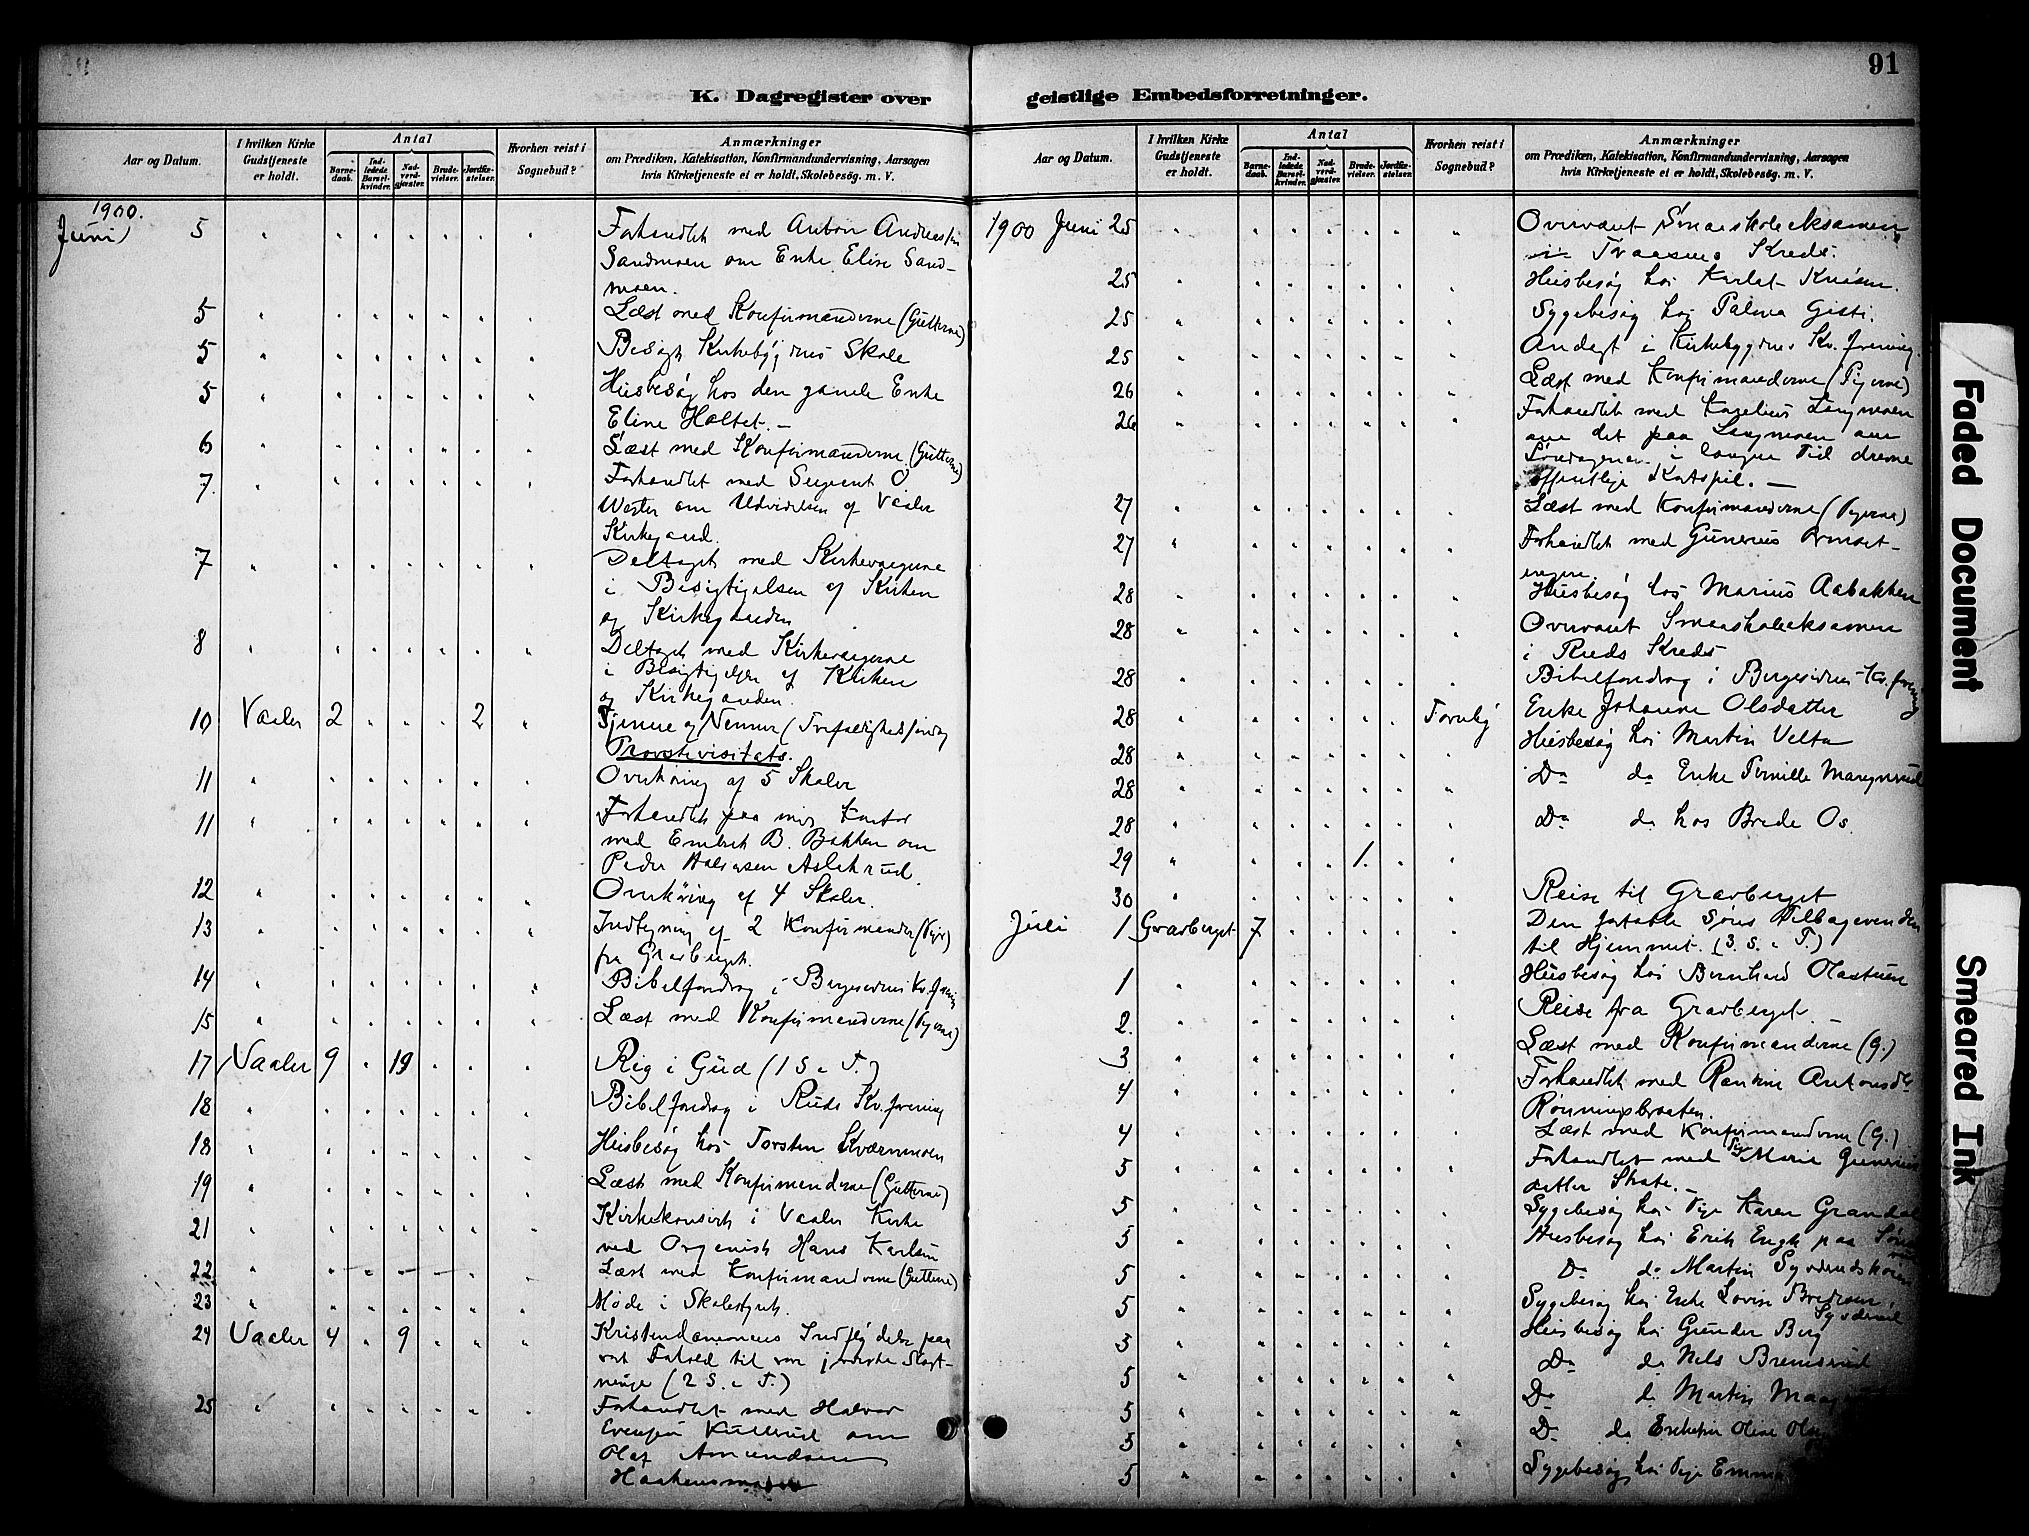 91
K. Dagregister over geistlige Embedsforretninger.
Aar og Datum.
I hvilken Kirke Gudstjeneste er holdt.
Antal
Barnedaab.
Indledede Barselkvinder.
Nadverdgjæster.
Brudevielser.
Jordfæstelser.
Hvorhen reist i Sognebud?
Anmærkninger
om Prædiken, Katekisation, Konfirmandundervisning, Aarsagen
hvis Kirketjeneste ei er holdt, Skolebesøg. m. V.
1900.
Juni 5 Forhandlet med Anton
Sandmoen om Enke Elise Sand-
moen.
5 Læst med Konfirmanderne (Gutterne)
5 Besøgt Kirkebygdens Skole
5 Husbesøg hos den gamle Enke
Eline Holtet. —
6 Læst med Konfirmanderne (Gutterne)
7. Forhandlet med Sergeant O
Wester om Udvidelsen af Vaaler
Kirkegaard.
7 Deltaget med Kirkevægerne
i Besigtigelsen af Kirken
og Kirkegaarden
8 Deltaget med Kirkevægerne
i Besigtigelsen af Kirken
og Kirkegaarden.
10 Vaaler 2 2 Tjenere og Venner (Trefoldighedssøndag
Provstevisitats.
11 Overhøring af 5 Skoler
11 Forhandlet paa mit Kontor
med Embret B. Bakken om
Peder Halvorsen Aslakrud.
12 Overhøring af 4 Skoler.
13 Indtegning af 2 Konfirmander (Piger)
fra Gravberget.
14 Bibelforedrag i Bergesidens Kv.forening
15 Læst med Konfirmanderne (Pigerne)
17 Vaaler 9 19 Rig i Gud (1 S. e. T.)
18 Bibelforedrag i Ruds Kv.forening
18 Husbesøg hos Torsten Kværnmoen
19 Læst med Konfirmanderne (Gutterne)
21 Kirkekonsert i Vaaler Kirke
ved Organist Hans Karlsen
22 Læst med Konfirmanderne (Gutterne)
23 Møde i Skolestyret.
24 Vaaler 4 9 Kristendommens Indflydelse paa
vort Forhold til vore jordiske
(2 S. e. T.)
25 Forhandlet med Halvor
Evensen Kulterud om
Olaf Amundsen
Haakensmoen
Aar og Datum.
I hvilken Kirke Gudstjeneste er holdt.
Antal
Barnedaab.
Indledede Barselkvinder.
Nadverdgjæster.
Brudevielser.
Jordfæstelser.
Hvorhen reist i Sognebud?
Anmærkninger
om Prædiken, Katekisation, Konfirmandundervisning, Aarsagen
hvis Kirketjeneste ei er holdt, Skolebesøg. m. V.
1900 Juni 25 Overvaret Smaaskoleeksamen
i Kreds.
25 Husbesøg hos
25 Sygebesøg hos Palma Gisti.
25 Andagt i Kirkebygdens Kv.forening.
26 Læst med Konfirmanderne (Pigerne)
26 Forhandlet med Langmoen
om det paa Langmoen om
Søndagene i længere Tid drevne
offentlige Kortspil. —
27 Læst med Konfirmanderne (Pigerne)
27 Forhandlet med Gunerius
28 Husbesøg hos Marius Aabakken
28 Overvaret Smaaskoleeksamen
i Ruds Kreds
28 Bibelforedrag i Bergesidens Kv.forening
28 Torneby Enke Johanne Olsdatter
28 Husbesøg hos Martin Velta
28 Do do Enke Pernille
28 Do do hos Brede Os.
29 1.
30 Reise til Gravberget
Juli 1 Gravberget 7 Den fortabte Søns Tilbagevenden
til Hjemmet. (3. S. e T.)
1 Husbesøg hos Bernhard
2. Reise fra Gravberget. —
3 Læst med Konfirmanderne (G.)
4 Forhandlet med Antonsdtr
Rønningsbraaten.
4 Læst med Konfirmanderne (G.)
5 Forhandlet med Pige Marie Gunerius
datter —
5 Sygebesøg hos Pige Karen
5 Husbesøg hos Erik Engh paa
5 Do do Martin
5 Sygebesøg hos Enke Lovise Bredesen,
5 Husbesøg hos Gunder Berg
5 Do do Nils
5 Do do Martin
5 Do do Oline
5 Sygebesøg hos Pige Emma
Faded Document
Smeared Ink